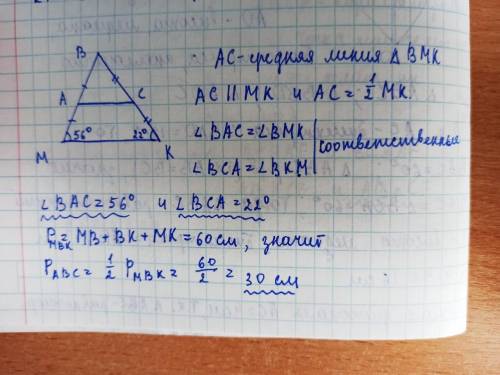 AC-средняя линия △ BMK
AC || MK и AC = 1/2 MK.
∠BAC = ∠BMK
∠BCA = ∠BKM
соответственные
B
A
C
56°
22°
M
K
∠BAC = 56° и ∠BCA = 22°
P MBK = MB + BK + MK = 60 см, значит
P ABC = 1/2 P MBK = 60/2 = 30 см